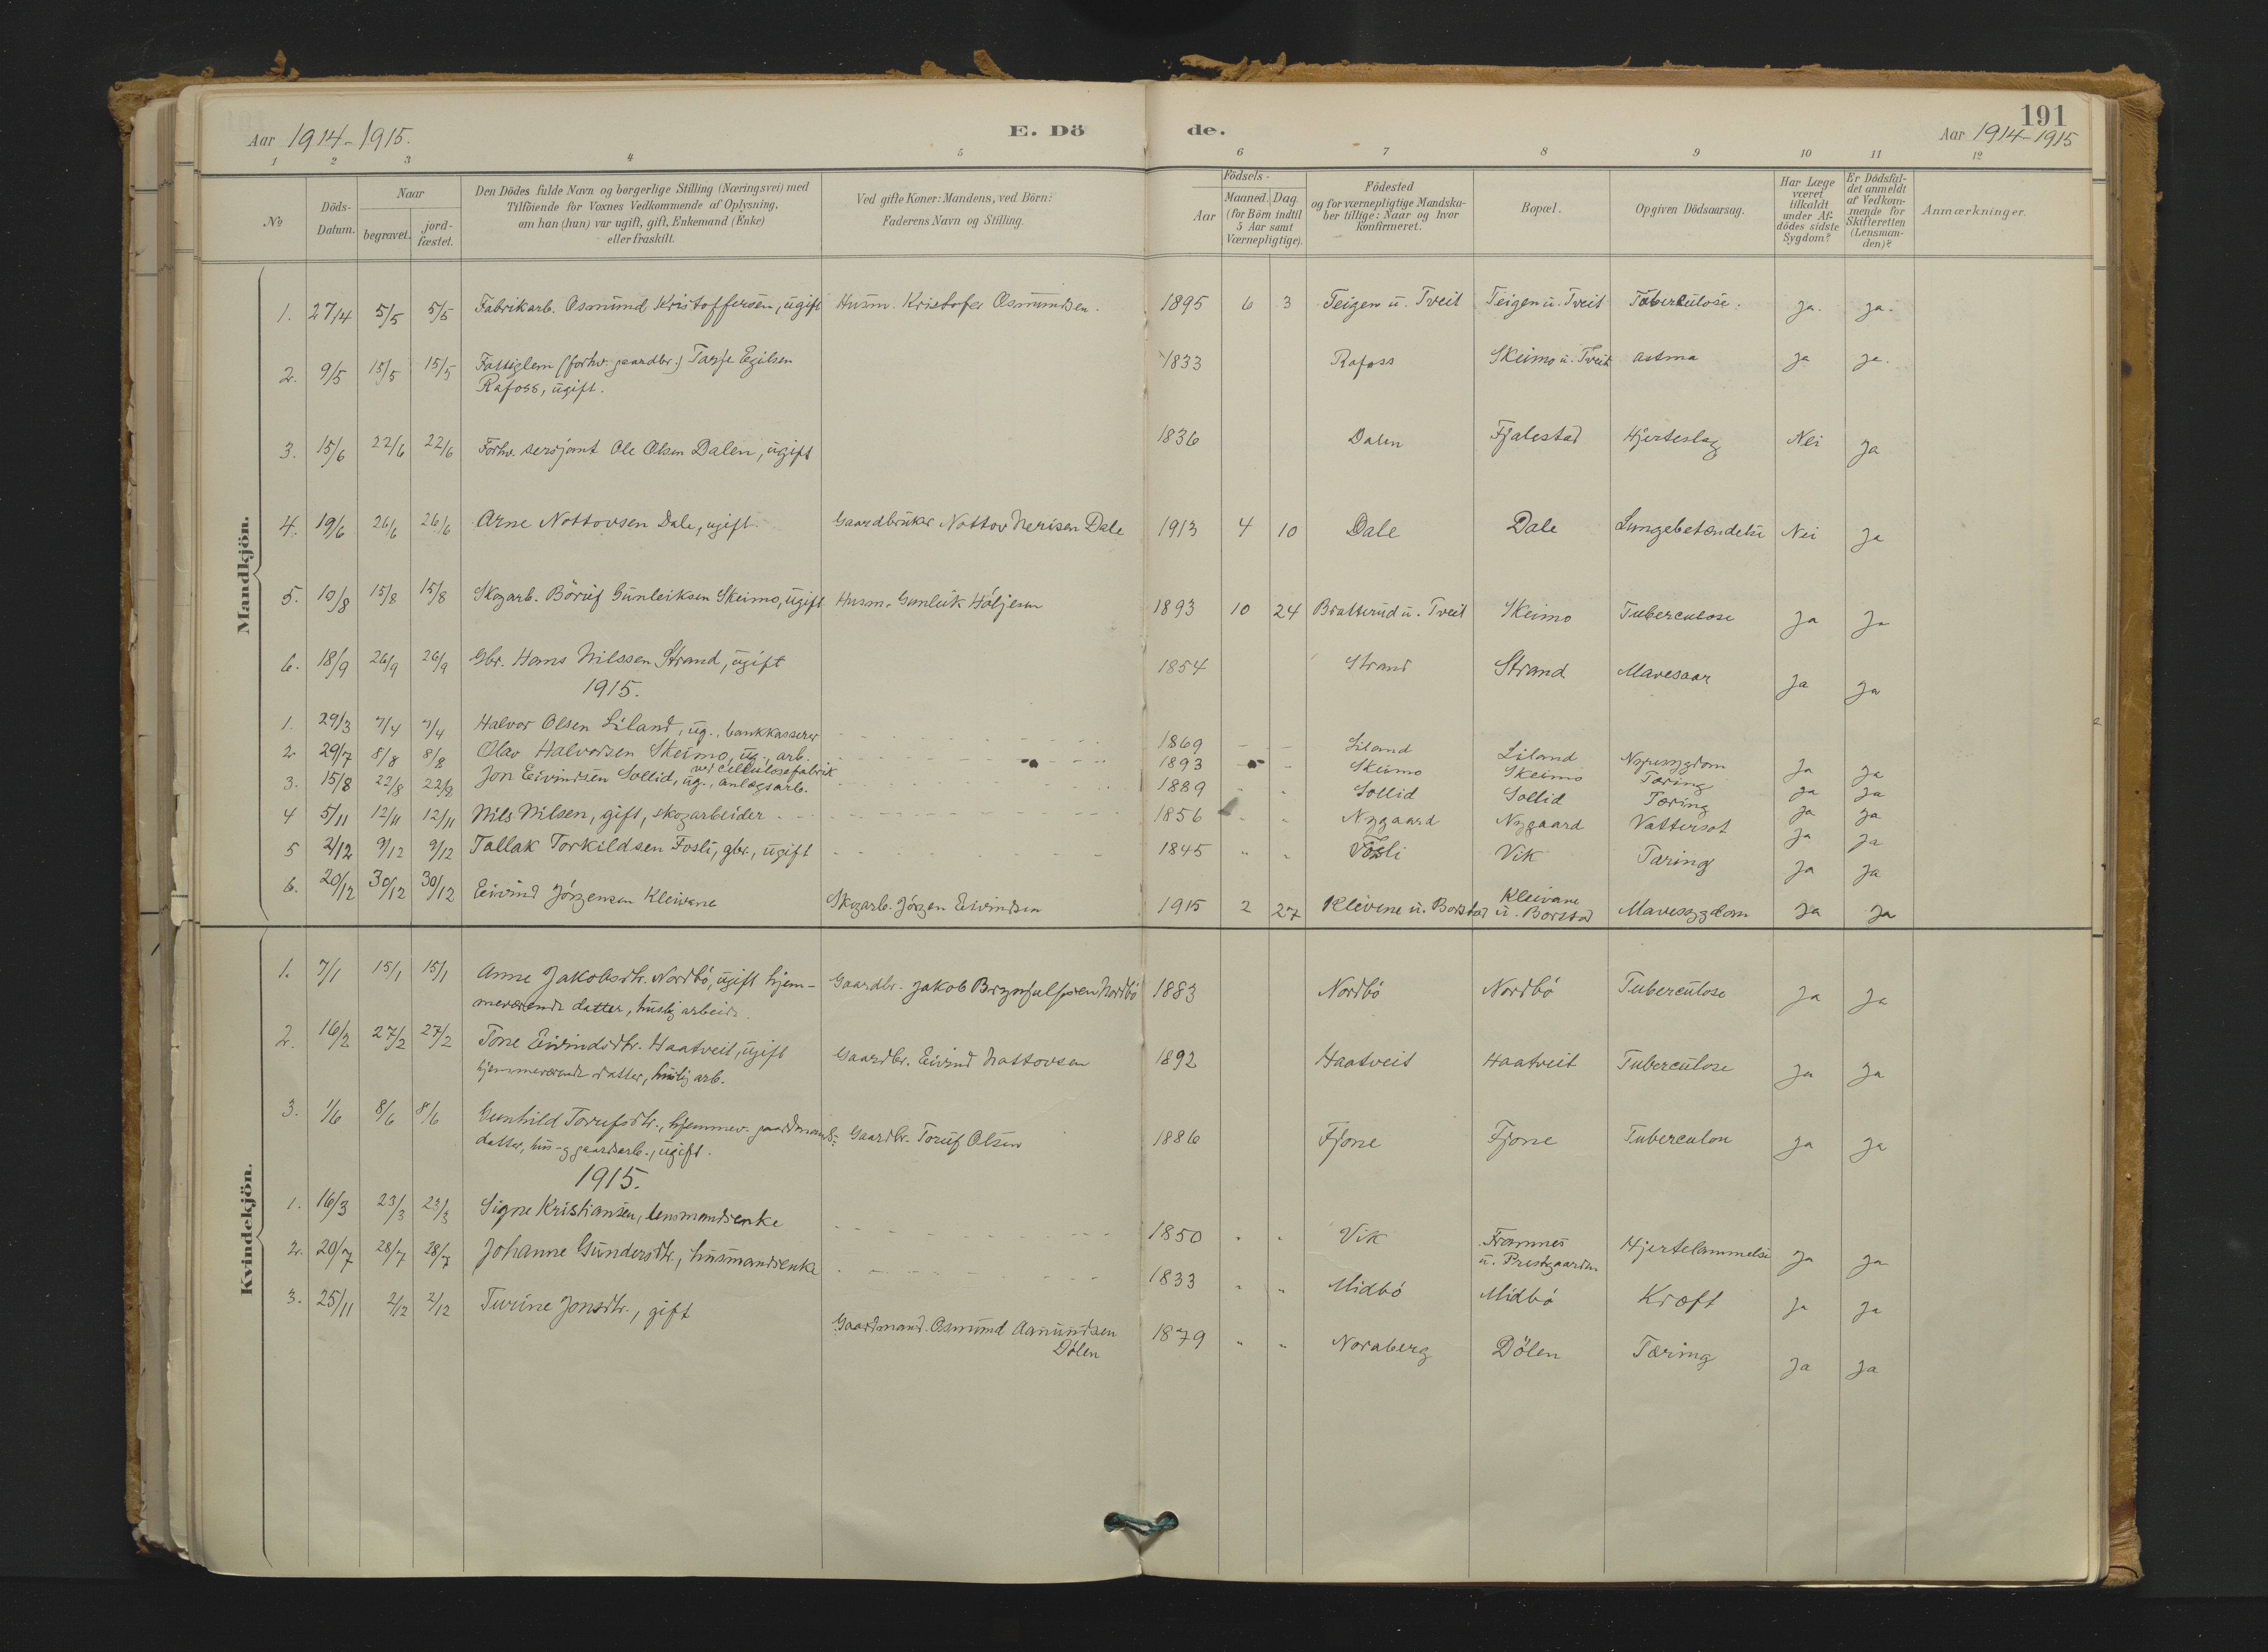 191
Aar 1914-1915. E. Dö de. Aar 1914-1915
1 2 3 4 5 6 7 8 9 10 11 12
№
Döds-Datum.
Naar
begravet.
jord-fæstet.
Den Dödes fulde Navn og borgerlige Stilling (Næringsvei) med
Tilföiende for Voxnes Vedkommende af Oplysning,
om han (hun) var ugift, gift, Enkemand (Enke)
eller fraskilt.
Ved gifte Koner: Mandens, ved Börn:
Faderens Navn og Stilling.
Födsels-
Aar
Maaned. Dag.
(for Börn indtil
5 Aar samt
Værnepligtige).
Födested
og for værnepligtige Mandska-
ber tillige: Naar og hvor
konfirmeret.
Bopæl.
Opgiven Dödsaarsag.
Har Læge
været
tilkaldt
under Af-
dödes sidste
Sygdom?
Er Dödsfal-
det anmeldt
af Vedkom-
mende for
Skifteretten
(Lensman-
den)?
Anmærkninger.
Mandkjön.
1. 27/4 5/5 5/5 Fabrikarb. Osmund Kristoffersen, ugift Husm. Kristofer Osmundsen. 1895 6 3 Teigen u. Tveit Teigen u. Tveit Tuberculose. ja. ja.
2. 9/5 15/5 15/5 Fattiglem (forhv. gaardbr.) Tarje Egilsen 1833 Rafoss Skeimo u. Tveit astma ja ja.
Rafoss, ugift.
3. 15/6 22/6 22/6 Forhv. sersjant Ole Olsen Dalen, ugift 1836 Dalen Fjalestad Hjerteslag Nei ja
4. 19/6 26/6 26/6 Arne Nottovsen Dale, ugift. Gaardbruker Nottov Nerisen Dale 1913 4 10 Dale Dale Lungebetændelse Nei ja
5. 10/8 15/8 15/8 Skogarb. Böruf Gunleiksen Skeimo, ugift Husm. Gunleik 1893 10 24 Bratterud u. Tveit Skeimo Tuberculose ja ja
6. 18/9 26/9 26/9 Gbr. Hans Nilssen Strand, ugift 1854 Strand Strand Mavesaar ja ja
1915.
1. 29/3 7/4 7/4 Halvor Olsen Liland, ug., bankkasserer 1869 Liland Liland Nyresygdom ja ja
2. 29/7 8/8 8/8 Olav Halvorsen Skeimo, ug., arb. 1893 Skeimo Skeimo Tæring ja ja
ved Cellulosefabrik
3. 15/8 22/8 22/8 Jon Eivindsen Sollid, ug., anlægsarb. 1889 Sollid Sollid Tæring ja ja
4 5/11 12/11 12/11 Nils Nilsen, gift, skogarbeider 1856 Nygaard Nygaard Vattersot ja ja
5 2/12 9/12 9/12 Tallak Torkildsen Fosli, gbr., ugift 1845 " " Fosli Vik Tæring ja ja
6. 20/12 30/12 30/12 Eivind Jörgensen Kleivane Skogarb. Jörgen Eivindsen 1915 2 27 Kleivene u. Borstad Kleivane u. Borstad Mavesygdom ja ja
Kvindekjön.
1. 7/1 15/1 15/1 Anne Jakobsdtr. Nordbö, ugift hjem- Gaardbr. Jakob Brynjulfsen Nordbö 1883 Nordbö Nordbö Tuberculose ja ja
meværende datter, huslig arbeide.
2. 16/2 27/2 27/2 Tone Eivindsdtr. Haatveit, ugift Gaardbr. Eivind Nottovsen 1892 Haatveit Haatveit Tuberculose ja ja
hjemmeværende datter, huslig arb.
3. 1/6 8/6 8/6 Gunhild Torufsdtr., hjemmev. gaardmands- Gaardbr. Toruf Olsen 1886 Fjone Fjone Tuberculon ja ja
datter, hus- og gaardsarb., ugift.
1915.
1. 16/3 23/3 23/3 Signe Kristiansen, lensmandsenke 1850 " " Vik Framnes u. Prestgaarden Hjertelammelse ja ja
2. 20/7 28/7 28/7 Johanne Gundersdtr., husmandsenke 1833 " " Midbö Midbö Kræft ja ja
3. 25/11 2/12 2/12 Turine Jonsdtr., gift Gaardmand Osmund Aanundsen 1879 " " Noraberg Dölen Tæring ja ja
Dölen